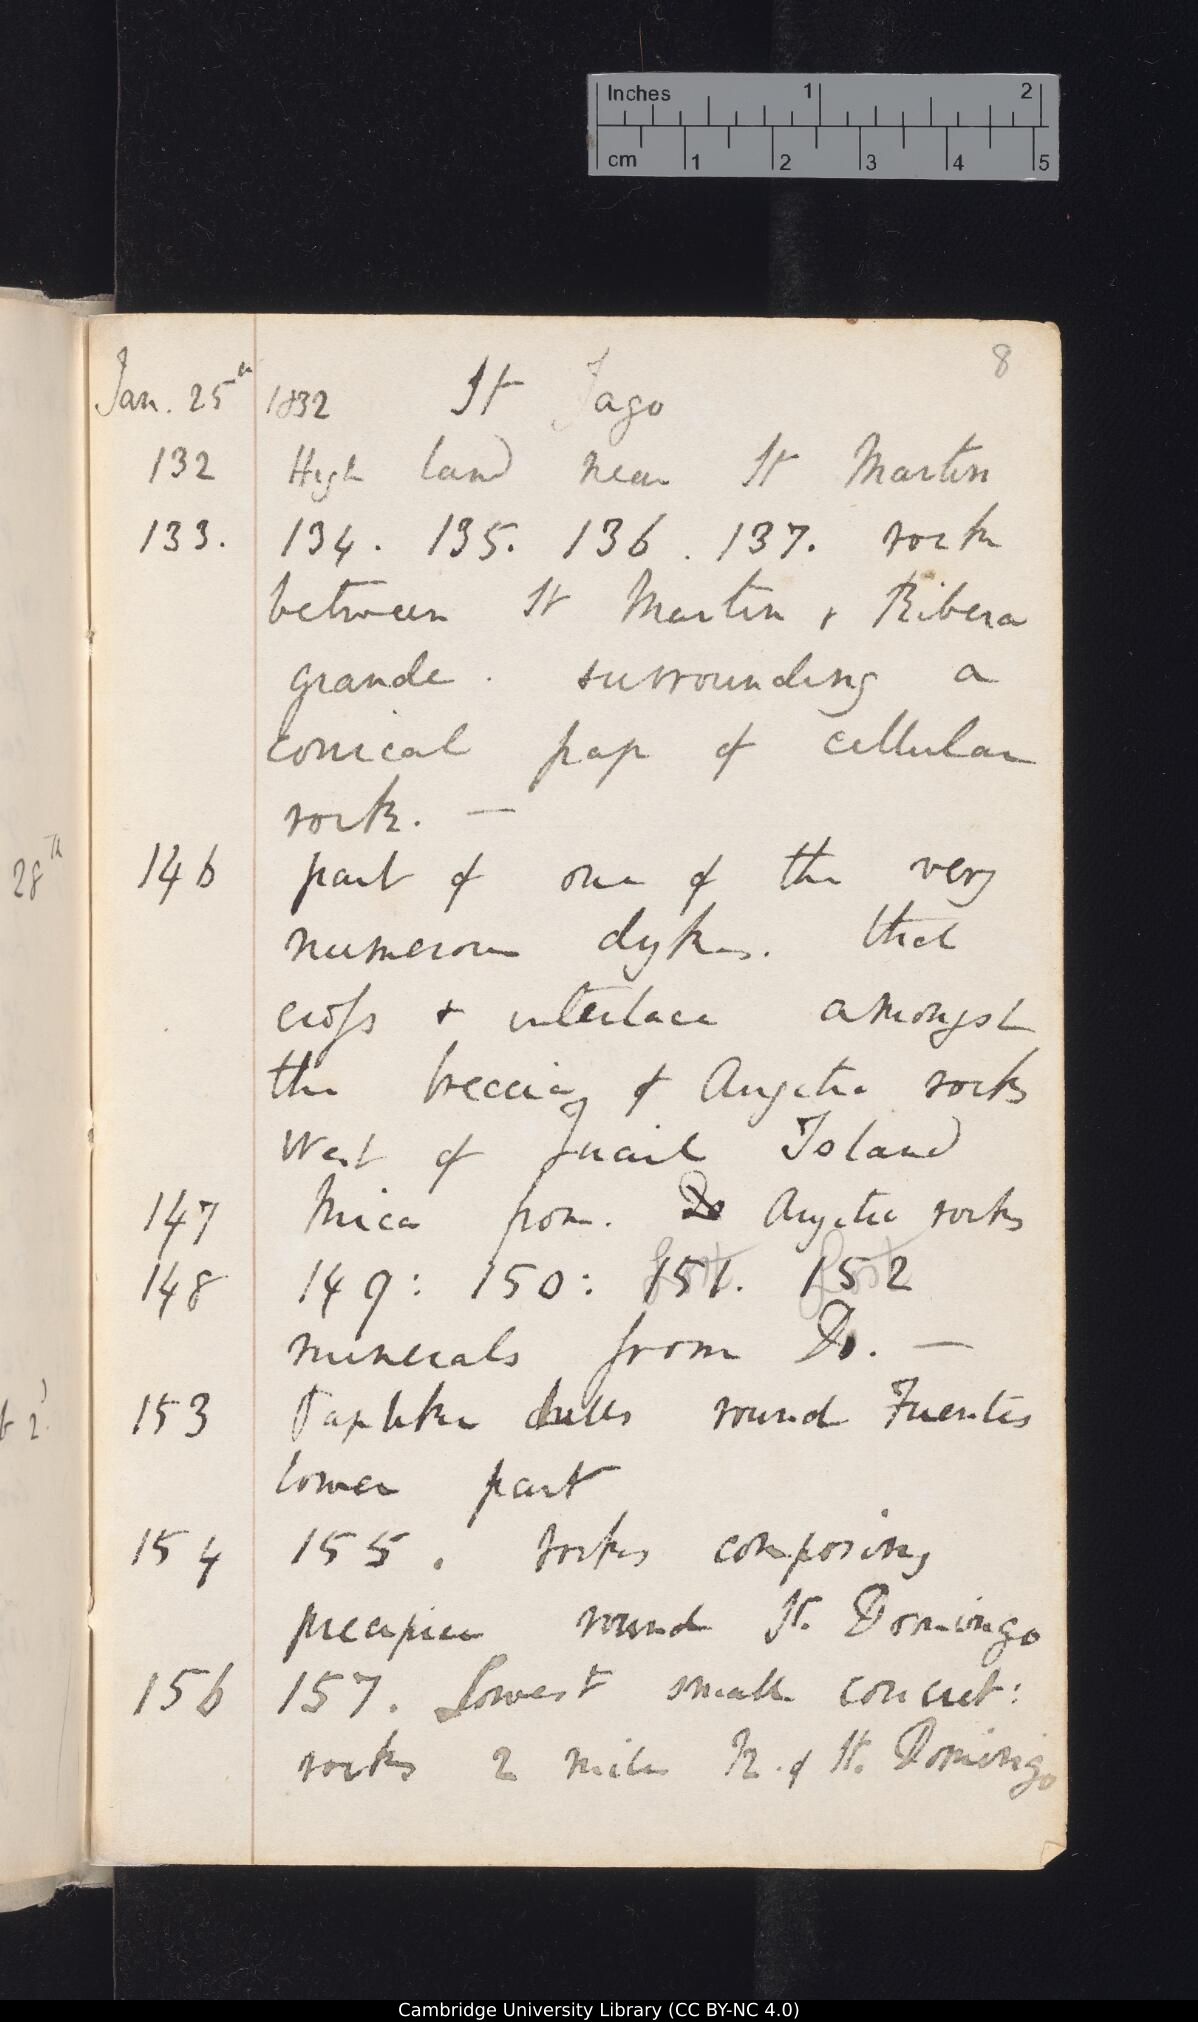 Inches 1 2
cm 1 2 3 4 5
8
Jan. 25th 1832 St Jago
132 High land near St Martin
133. 134. 135. 136. 137. rock
between St Martin & Ribera
grande. surrounding a
conical pap of cellular
rock. —
28th
146 part of one of the very
numerous dykes. that
cross & interlace amongst
the breccia & Augitic rocks
West of Quail Island
147 Mica from. Do Augitic rocks
148 149: 150: 151. 152
Lost Lost
minerals from Do. —
153 hills round Fuentes
lower part
154 155. rocks composing
precipice round St. Domingo
156 157. Lowest small concret:
rocks 2 miles N. of St. Domingo
Cambridge University Library (CC BY-NC 4.0)